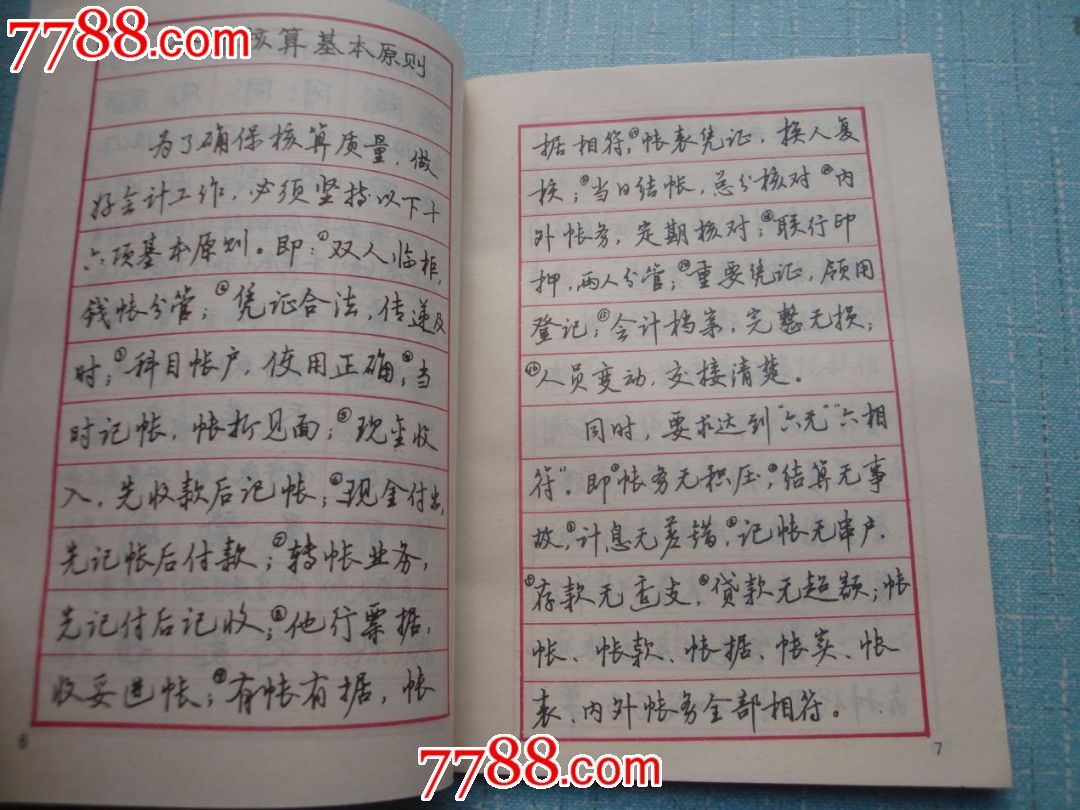 7788.com
7788.com
核算基本原则
为了确保核算质量,做
好会计工作,必须坚持以下十
六项基本原则。即:①双人临柜,
钱帐分管;②凭证合法,传递及
时;③科目帐户,使用正确;④当
时记帐,帐折见面;⑤现金收
入,先收款后记帐;⑥现金付出,
先记帐后付款;⑦转帐业务,
先记付后记收;⑧他行票据,
收妥进帐;⑨有帐有据,帐
6
据相符;⑩帐表凭证,换人复
核;⑪当日结帐,总分核对⑫内
外帐务,定期核对;⑬联行印
押,两人分管;⑭重要凭证,领用
登记;⑮会计档案,完整无损;
⑯人员变动,交接清楚。
同时,要求达到“六无”“六相
符”。即①帐务无积压;②结算无事
故,③计息无差错,④记帐无串户,
⑤存款无透支,⑥贷款无超额;帐
帐、帐款、帐据、帐实、帐
表、内外帐务全部相符。
7
7788.com